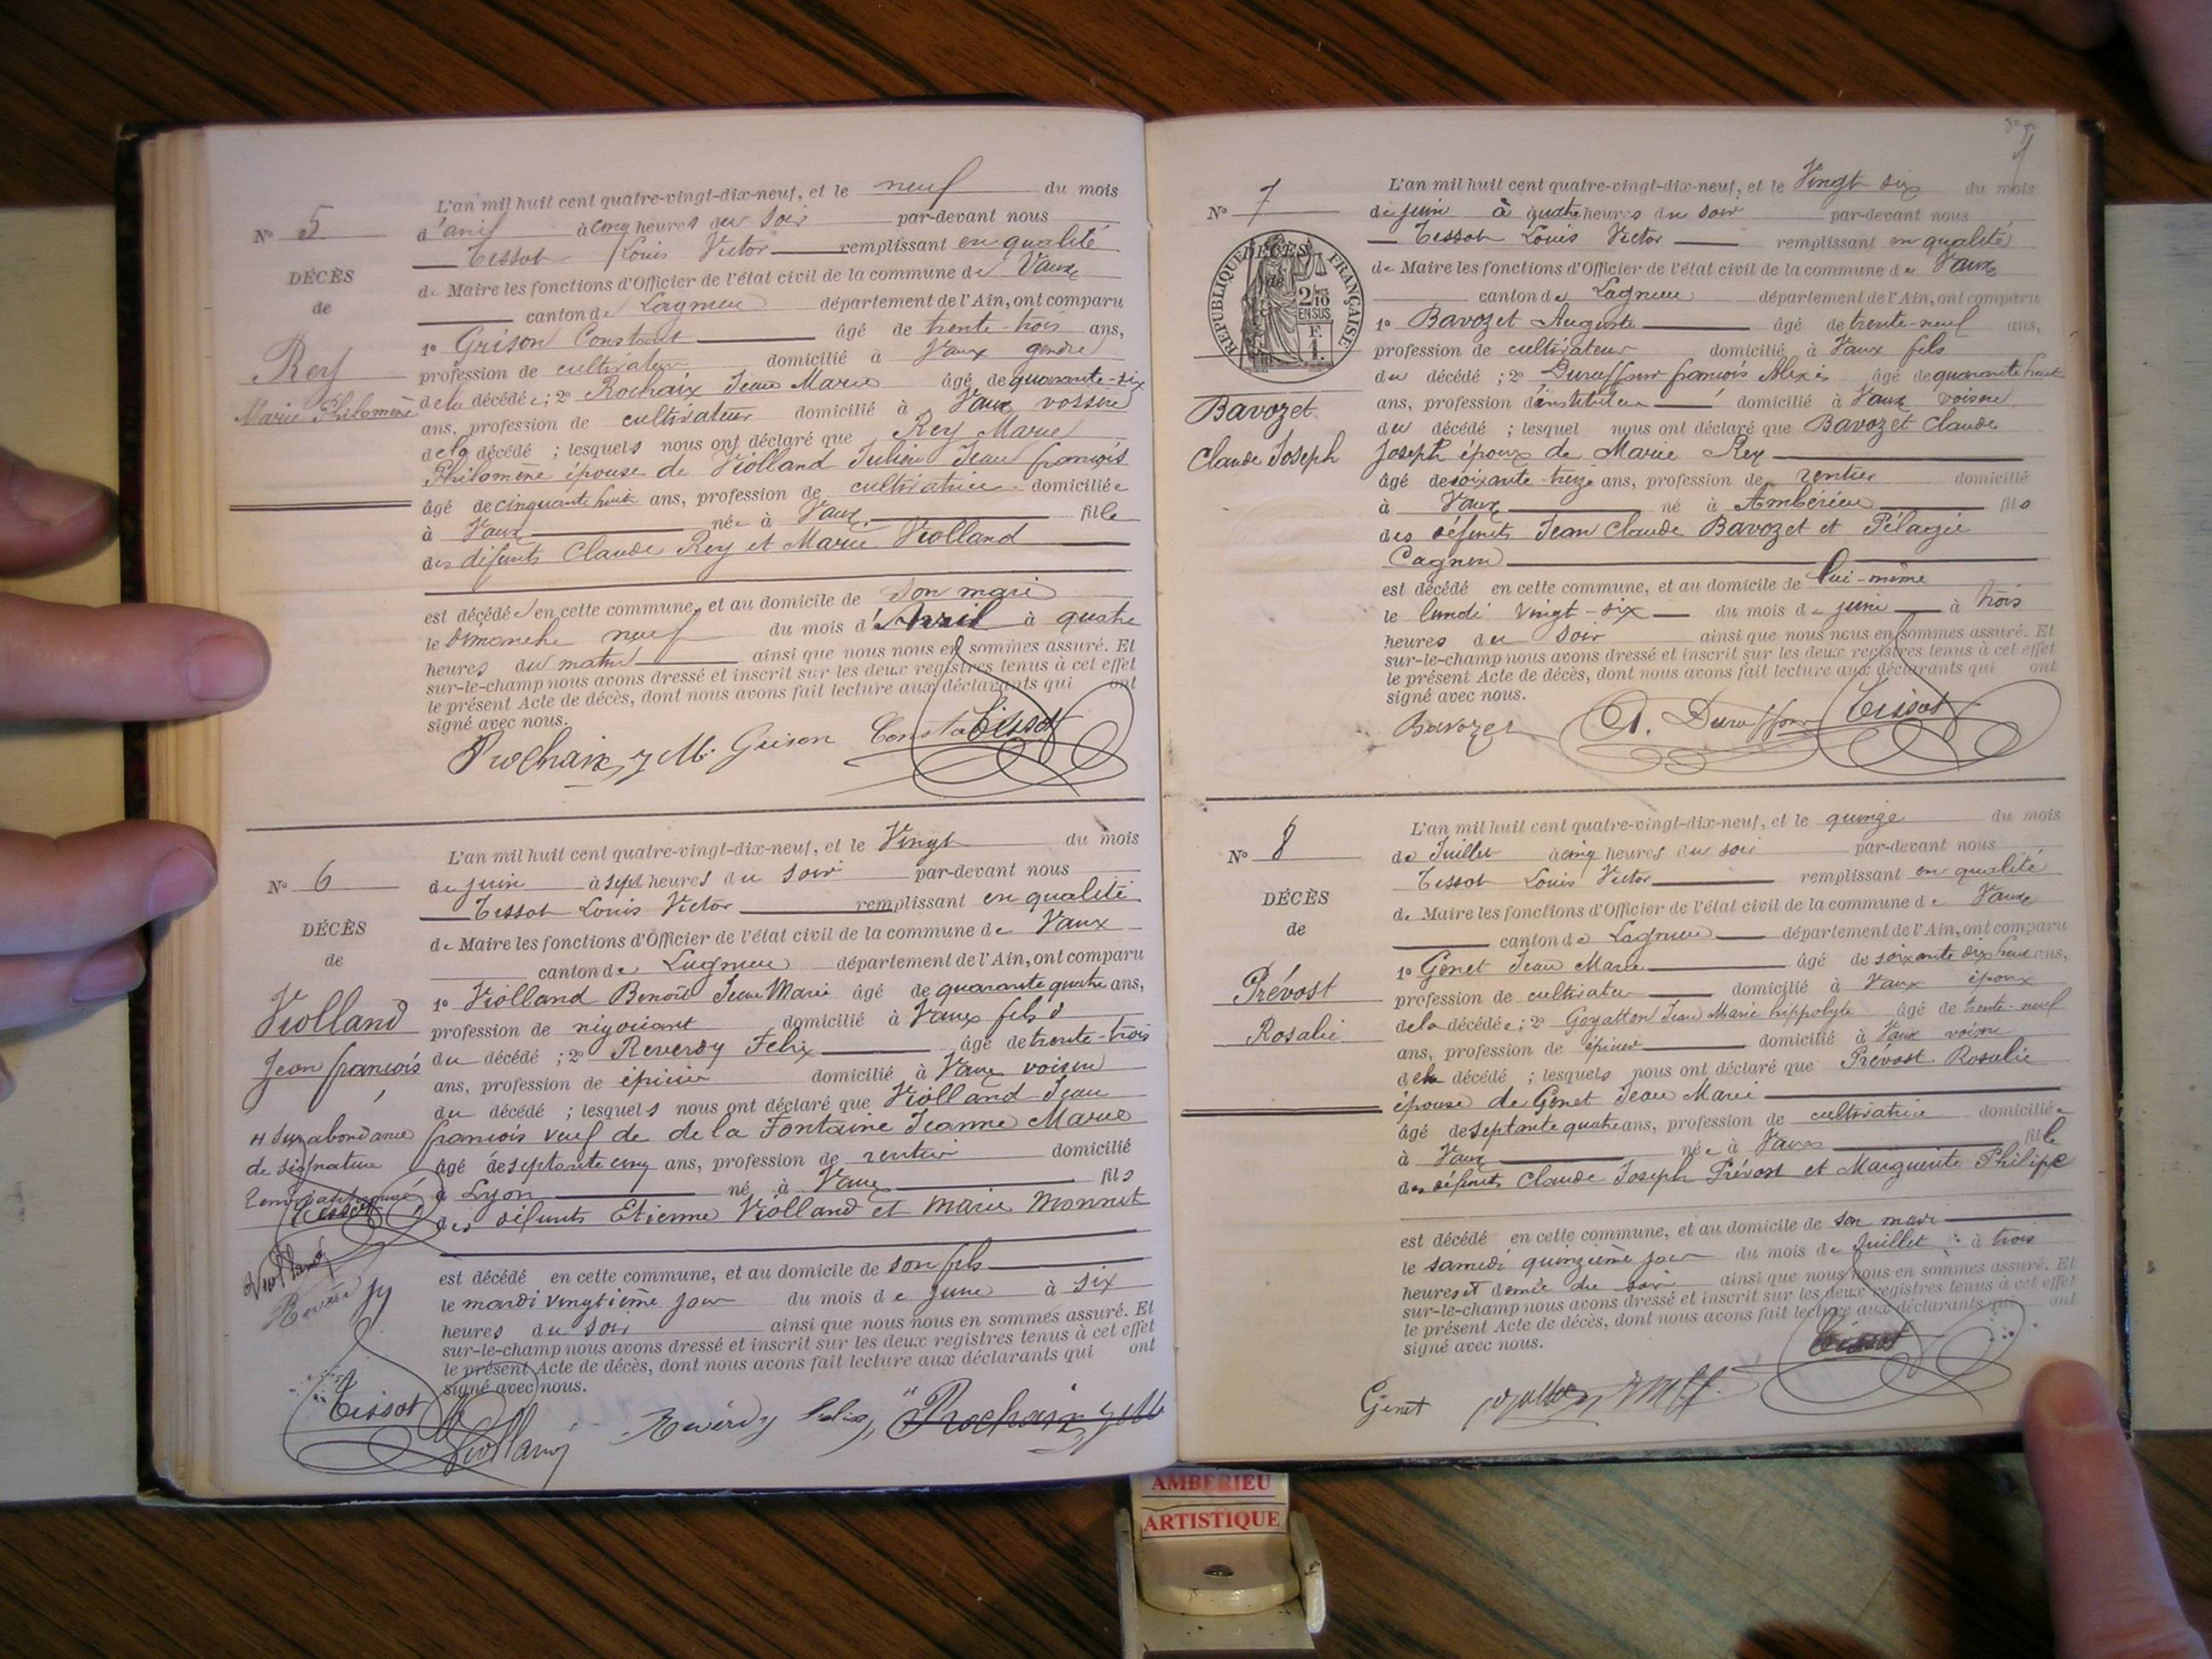 L'an mil huit cent quatre-vingt-dix-neuf, et le neuf du mois
N° 5
d'avril à cinq heures du soir par-devant nous
Tissot Louis Victor remplissant en qualité
DÉCÈS
de Maire les fonctions d'Officier de l'état civil de la commune de Vaux
de
canton de Lagnieu département de l'Ain, ont comparu
1° Grison Constant âgé de trente-trois ans,
Rey
profession de cultivateur domicilié à Vaux gendre
Marie Philomène
de la décédée ; 2° Rochaix Jean Marie âgé de quarante-six
ans, profession de cultivateur domicilié à Vaux
de la décédé ; lesquels nous ont déclaré que Rey Marie
Philomène épouse de Violland Julien Jean françois
âgé de cinquante huit ans, profession de cultivatrice domiciliée
à Vaux née à Vaux fille
des défunts Claude Rey et Marie Violland
est décédée en cette commune, et au domicile de son mari
le dimanche neuf du mois d'Avril à quatre
heures du matin ainsi que nous nous en sommes assuré. Et
sur-le-champ nous avons dressé et inscrit sur les deux registres tenus à cet effet
le présent Acte de décès, dont nous avons fait lecture aux déclarants qui ont
signé avec nous.
Rochaix J M. Grison Constant Tissot
L'an mil huit cent quatre-vingt-dix-neuf, et le Vingt du mois
N° 6
de juin à sept heures du soir par-devant nous
Tissot Louis Victor remplissant en qualité
DÉCÈS
de Maire les fonctions d'Officier de l'état civil de la commune de Vaux
de
canton de Lagnieu département de l'Ain, ont comparu
Violland
1° Violland Benoît Jean Marie âgé de quarante quatre ans,
profession de négociant domicilié à Vaux fils
Jean françois
du décédé ; 2° Reverdy Felix âgé de trente-trois
ans, profession de épicier domicilié à Vaux voisin
du décédé ; lesquels nous ont déclaré que Violland Jean
françois veuf de de la Fontaine Jeanne Marie
de signature
âgé de septante cinq ans, profession de rentier domicilié
à Lyon né à Vaux fils
Tissot
des défunts Etienne Violland et Marie Monnet
Violland
est décédé en cette commune, et au domicile de son fils
le mardi vingtième jour du mois de june à six
heures du soir ainsi que nous nous en sommes assuré. Et
sur-le-champ nous avons dressé et inscrit sur les deux registres tenus à cet effet
le présent Acte de décès, dont nous avons fait lecture aux déclarants qui ont
signé avec nous.
Tissot
Violland Revérdy Felix Rochaix J M
L'an mil huit cent quatre-vingt-dix-neuf, et le Vingt six du mois
N° 7
de juin à quatre heures du soir par-devant nous
Tissot Louis Victor remplissant en qualité
RÉPUBLIQUE FRANÇAISE
DÉCÈS
de
2/10 EN SUS
de Maire les fonctions d'Officier de l'état civil de la commune de Vaux
canton de Lagnieu département de l'Ain, ont comparu
1° Bavozet Auguste âgé de trente-neuf ans,
profession de cultivateur domicilié à Vaux fils
du décédé ; 2° Duraffour françois Alexis âgé de quarante huit
Bavozet
ans, profession d'instituteur domicilié à Vaux voisin
du décédé ; lesquel nous ont déclaré que Bavozet Claude
Claude Joseph
Joseph époux de Marie Rey
âgé de soixante-treize ans, profession de rentier domicilié
à Vaux né à Ambérieu fils
des défunts Jean Claude Bavozet et Pélagie
est décédé en cette commune, et au domicile de lui-même
le lundi vingt-six du mois de juin à trois
heures du soir ainsi que nous nous en sommes assuré. Et
sur-le-champ nous avons dressé et inscrit sur les deux registres tenus à cet effet
le présent Acte de décès, dont nous avons fait lecture aux déclarants qui ont
signé avec nous.
Bavozet A. Duraffour Tissot
L'an mil huit cent quatre-vingt-dix-neuf, et le quinze du mois
N° 8
de Juillet à cinq heures du soir par-devant nous
Tissot Louis Victor remplissant en qualité
DÉCÈS
de Maire les fonctions d'Officier de l'état civil de la commune de Vaux
de
canton de Lagnieu département de l'Ain, ont comparu
1° Génet Jean Marie âgé de soixante dix huit ans,
Prévost
profession de cultivateur domicilié à Vaux époux
Rosalie
de la décédée ; 2° Goyatton Jean Marie hippolyte âgé de trente-neuf
ans, profession de épicier domicilié à Vaux voisin
de la décédé ; lesquels nous ont déclaré que Prévost Rosalie
épouse de Génet Jean Marie
âgé de septante quatre ans, profession de cultivatrice domiciliée
à Vaux née à Vaux fille
des défunts Claude Joseph Prévost et Marguerite Philippe
est décédé en cette commune, et au domicile de son mari
le samedi quinzième jour du mois de Juillet à trois
heures et demie du soir ainsi que nous nous en sommes assuré. Et
sur-le-champ nous avons dressé et inscrit sur les deux registres tenus à cet effet
le présent Acte de décès, dont nous avons fait lecture aux déclarants qui ont
signé avec nous.
Tissot
Génet
AMBERIEU
ARTISTIQUE